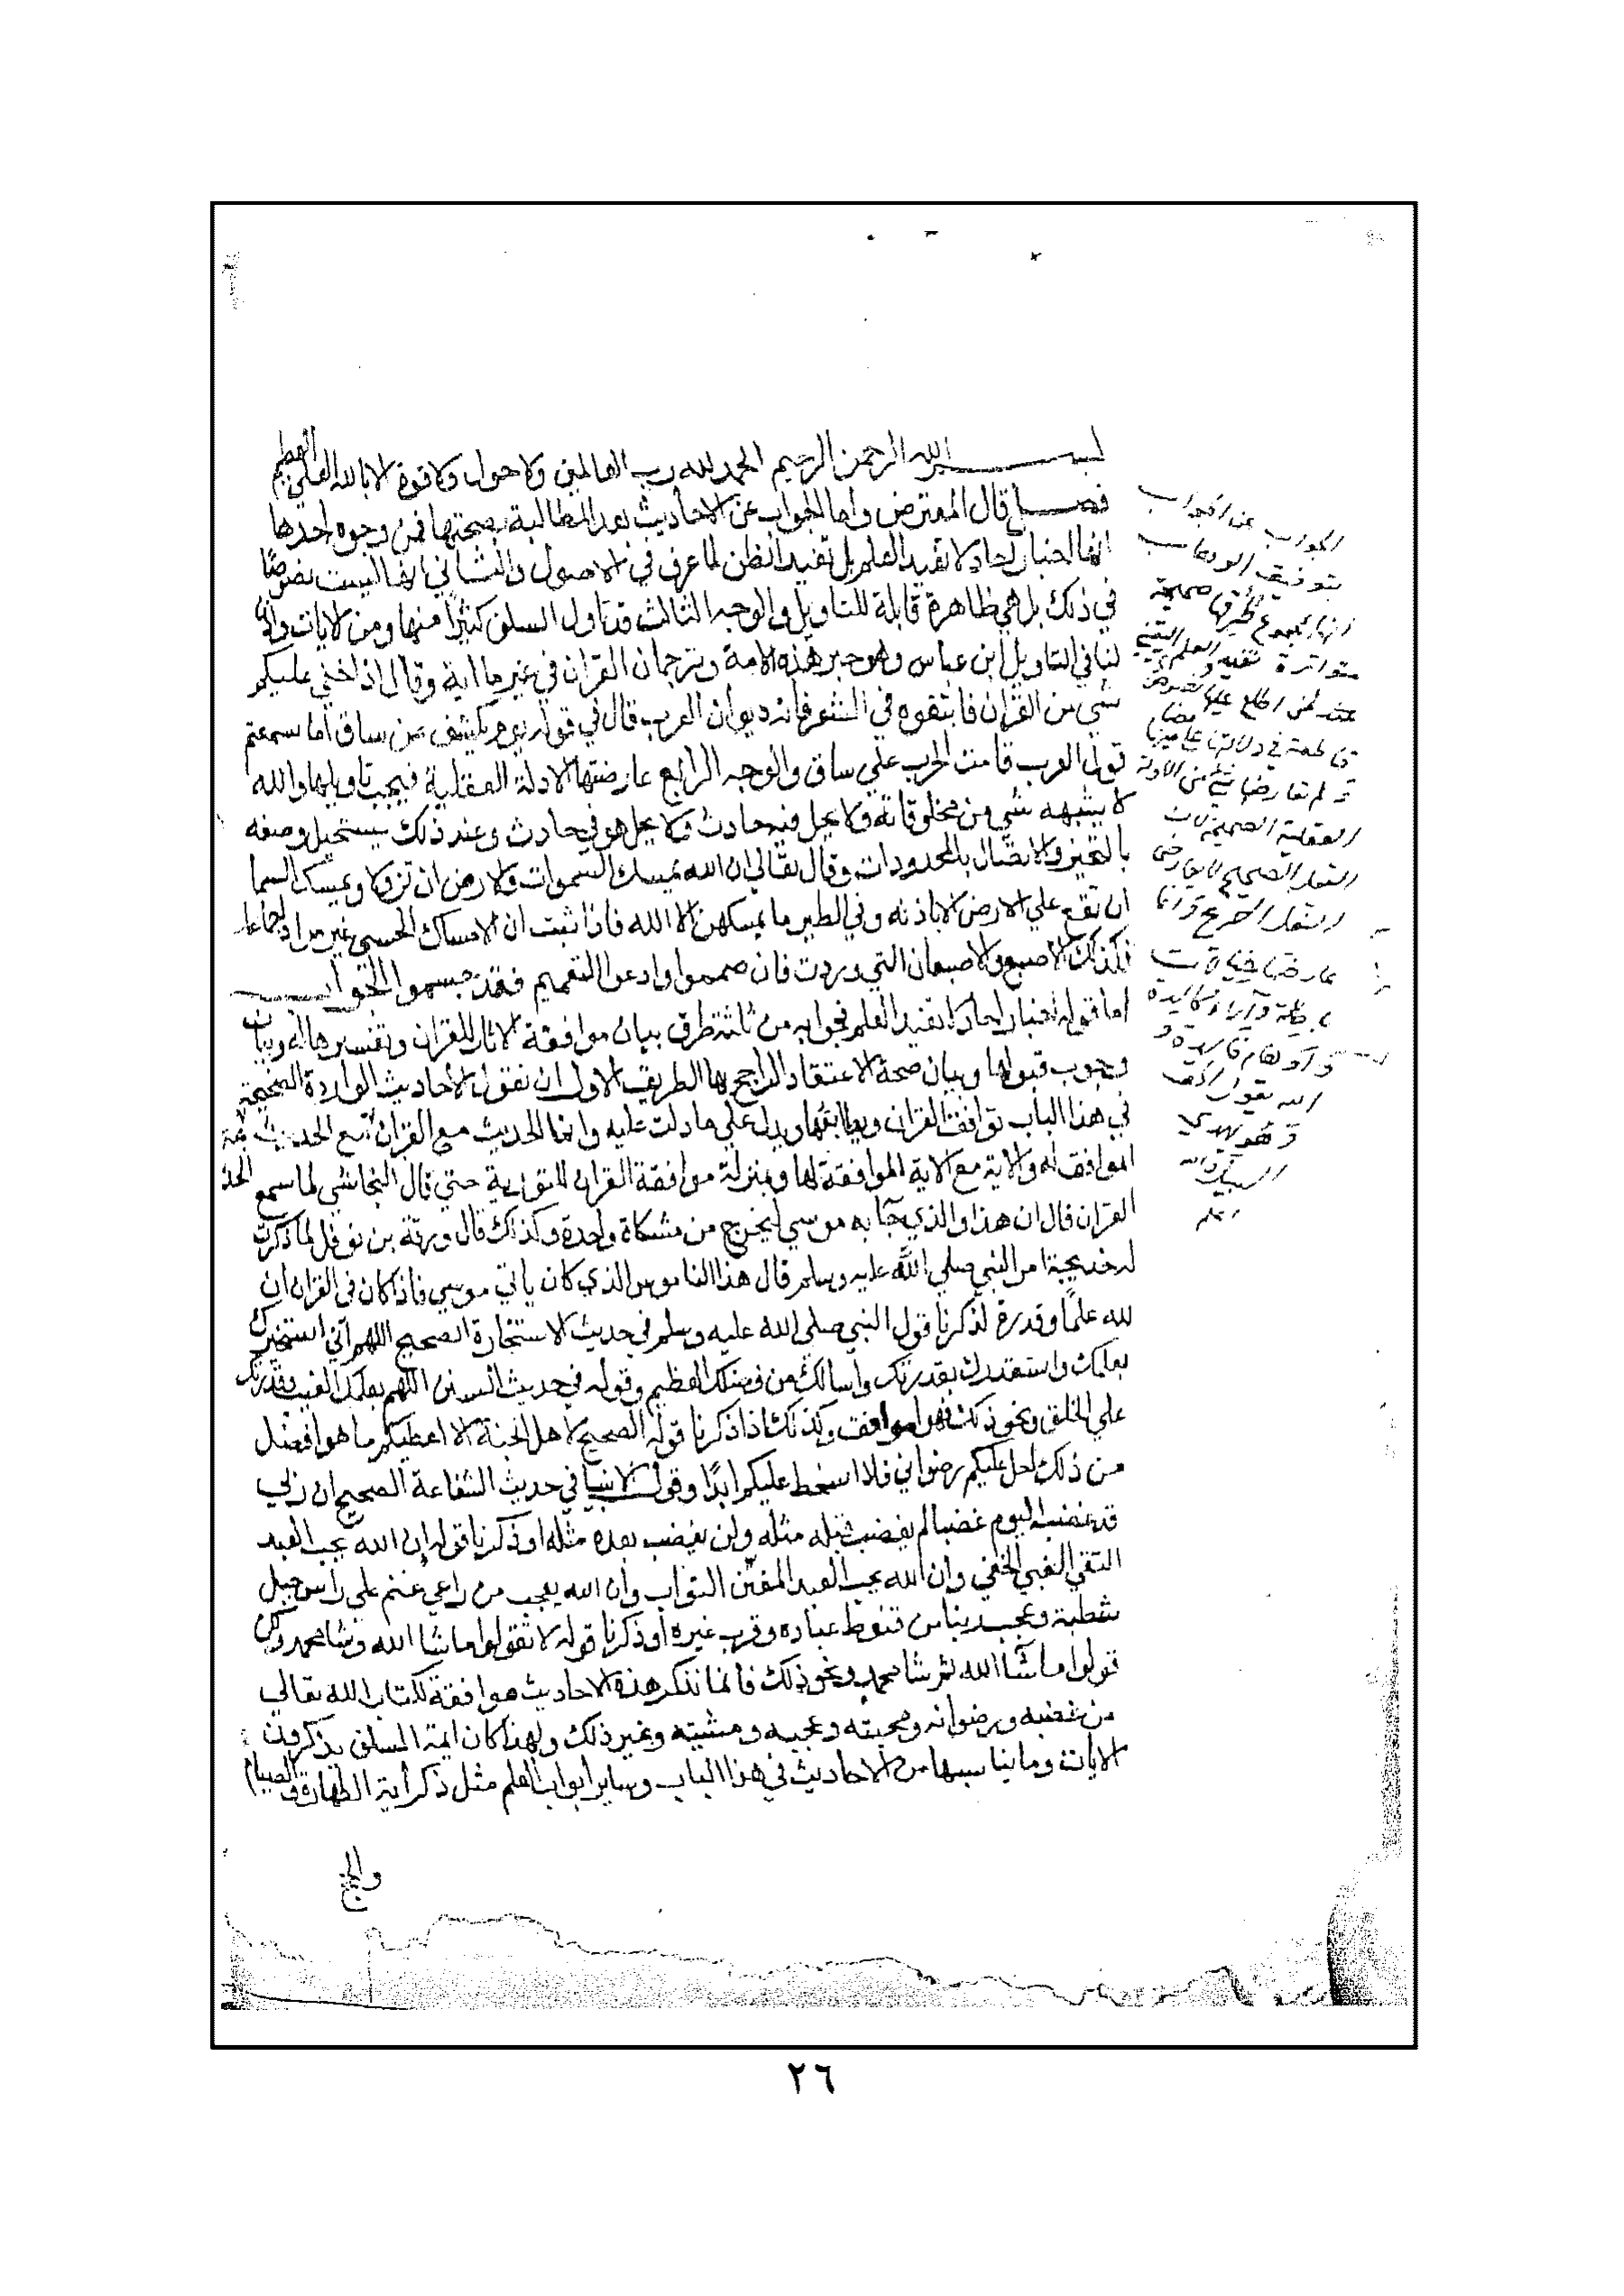 بسم الله الرحمن الرحيم الحمد لله رب العالمين ولا حول ولا قوة الا بالله العلي العظيم
فصل قال المعترض واما الجواب عن الاحاديث بعد المطالبة بصحتها فمن وجوه احدها
انها اخبار احاد لا تفيد العلم بل تفيد الظن لما عرف في الاصول والثاني انها ليست نصوصًا
في ذلك بل هي ظاهرة قابلة للتاويل والوجه الثالث قد تاول السلف كثيرًا منها ومن الايات
لنا في التاويل ابن عباس وهو حبر هذه الامة وترجمان القران في غير ما اية وقال اذا خفي عليكم
شي من القران فابتغوه في الشعر فانه ديوان العرب قال في قوله يوم يكشف عن ساق اما سمعتم
قول العرب قامت الحرب علي ساق والوجه الرابع عارضتها الادلة العقلية فيجب تاويلها والله
لا يشبهه شي من مخلوقاته ولا يحل فيه حادث ولا يحل هو في حادث وعند ذلك يستحيل وصفه
بالتحيز والاتصال بالمحدودات وقال تعالي ان الله يمسك السموات والارض ان تزولا ويمسك السما
ان تقع علي الارض الا باذنه وفي الطير ما يمسكهن الا الله فاذا ثبت ان الامساك الحسي غير مراد اجماعا
فكذلك الاصبع والاصبعان التي وردت فان صمموا وادعوا التعميم فقد جسموا الجواب
اما قوله اخبار احاد لا تفيد العلم فجوابه من ثلثة طرق بيان موافقة الاثار للقران وتفسيرها له وبيان
وجوب قبولها وبيان صحة الاعتقاد الراجح بها الطريق الاول ان نقول الاحاديث الواردة الصحيحة
في هذا الباب توافق القران ويطابقها ويدل علي ما دلت عليه وانما الحديث مع القران مع الحديث
الموافق له والاية مع الاية الموافقة لها وبمنزلة موافقة القران للتورية حتي قال النجاشي لما سمع
القران قال ان هذا والذي جا به موسي ليخرج من مشكاة واحدة وكذلك قال ورقة بن نوفل لما ذكرت
له خديجة امر النبي صلي الله عليه وسلم قال هذا الناموس الذي كان ياتي موسي فاذا كان في القران ان
لله علمًا وقدرة لذكرنا قول النبي صلى الله عليه وسلم في حديث الاستخارة الصحيح اللهم اني استخيرك
بعلمك واستقدرك بقدرتك واسالك من فضلك العظيم وقوله في حديث السنن اللهم بعلمك الغيب وقدرتك
علي الخلق ونحو ذلك فهو موافق وكذلك اذا ذكرنا قوله الصحيح لاهل الجنة الا اعطيكم ما هو افضل
من ذلك احل عليكم رضواني فلا اسخط عليكم ابدًا وقول الانبيا في حديث الشفاعة الصحيح ان ربي
قد غضب اليوم غضبا لم يغضب قبله مثله ولن يغضب بعده مثله او ذكرنا قوله ان الله يحب العبد
التقي الغني الخفي وان الله يحب العبد المفتن التواب وان الله يعجب من راعي غنم علي راس جبل
شظية وعجب ربنا من قنوط عباده وقرب غيره او ذكرنا قوله لا تقولوا ما شا الله وشا محمد ولكن
قولوا ما شا الله ثم شا محمد ونحو ذلك فانما نذكر هذه الاحاديث موافقة لكتاب الله تعالي
من غضبه ورضوانه ومحبته وعجبه ومشيته وغير ذلك ولهذا كان ايمة السلف يذكرون
الايات وما يناسبها من الاحاديث في هذا الباب وساير ابواب العلم مثل ذكر اية الطهارة والصيام
والحج
الجواب عن الجواب
بتوفيق الوهاب
انها بمجموع طرقها صحيحة
متواترة تفيد العلم اليقيني
عند من اطلع عليها نصوص
قاطعة في دلالتها على معناها
لم تعارضها شيء من الادلة
العقلية الصحيحة لان
العقل الصحيح لا يعارض
النقل الصريح وانما
عارضها خيالات
باطلة وآراء كاسدة
وأوهام فاسدة و
الله يقول الحق
وهو يهدي
السبيل والله
اعلم
٢٦